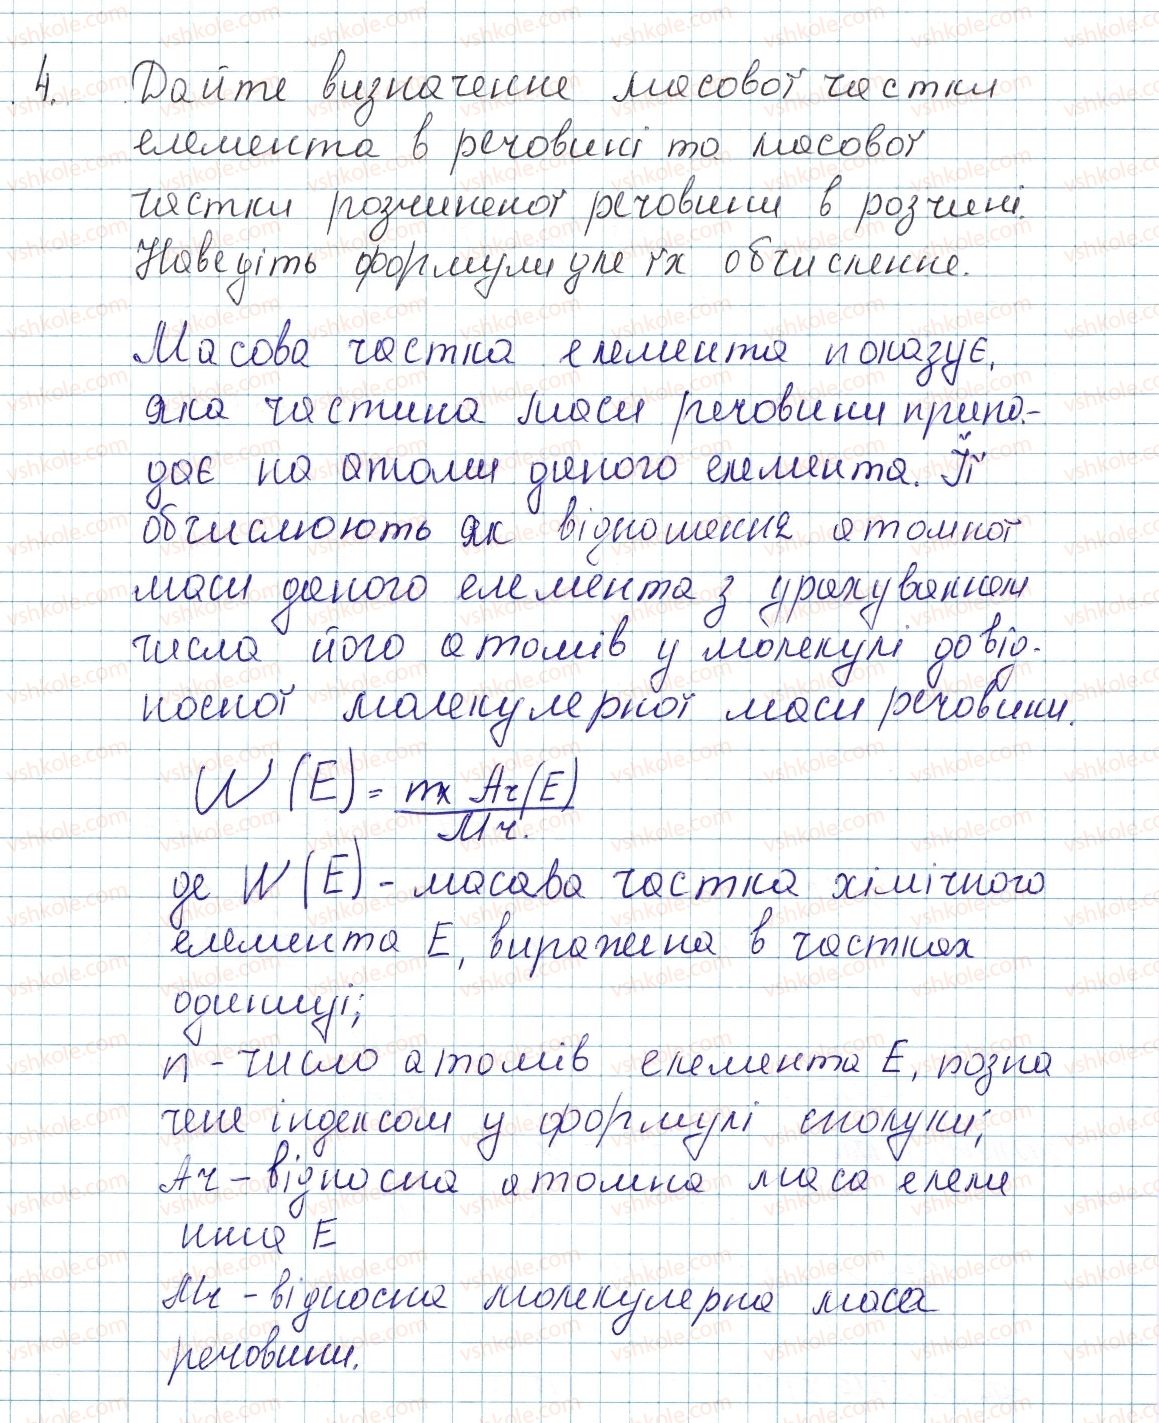 4. Дайте визначення масової частки
елемента в речовині та масової
частки розчиненої речовини в розчині.
Наведіть формули для їх обчислення.
Масова частка елемента показує,
яка частина маси речовини припа-
дає на атоми даного елемента. Її
обчислюють як відношення атомної
маси даного елемента з урахуванням
числа його атомів у молекулі до від-
носної молекулярної маси речовини.
W (E) = nx Ar(E)
Mr.
де W (E) - масава частка хімічного
елемента E, виражена в частках
одиниці;
n - число атомів елемента E, позна
чене індексом у формулі сполуки;
Ar - відносна атомна маса елеме
E
Mr - відносна молекулярна маса
речовини.